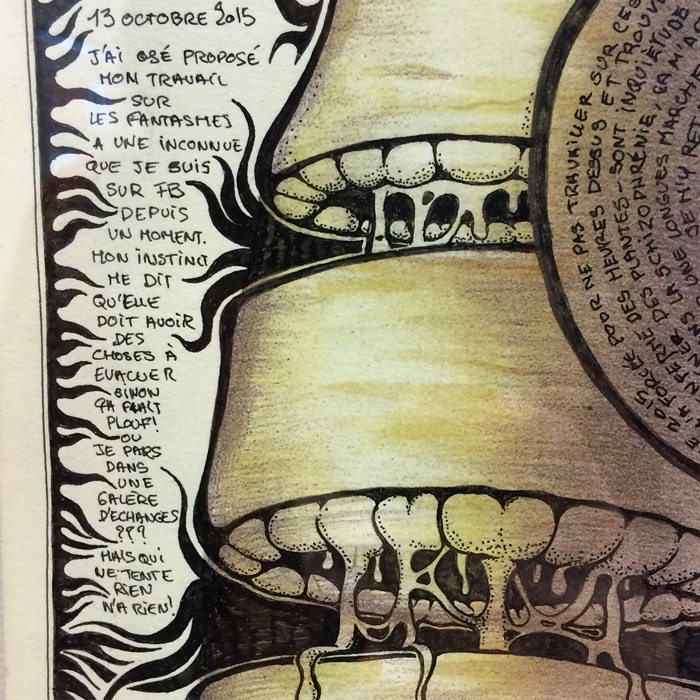 13 OCTOBRE 2015
J'AI OSÉ PROPOSÉ
MON TRAVAIL
SUR
LES FANTASMES
A UNE INCONNUE
QUE JE SUIS
SUR FB
DEPUIS
UN MOMENT.
MON INSTINCT
ME DIT
QU'ELLE
DOIT AVOIR
DES
CHOSES A
EVACUER
SINON
ÇA FAIT
PLOUF!
OU
JE PARS
DANS
UNE
GALÈRE
D'ECHANGES
???
MAIS QUI
NE TENTE
RIEN
N'A RIEN!
POUR NE PAS TRAVAILLER SUR CES
HEURES DESSUS ET TROUVE
DES PLANTES - SONT INQUIÉTUDE
FERME DES SCHIZOPHRÉNIE, ÇA M'A
LONGUES MARCHE